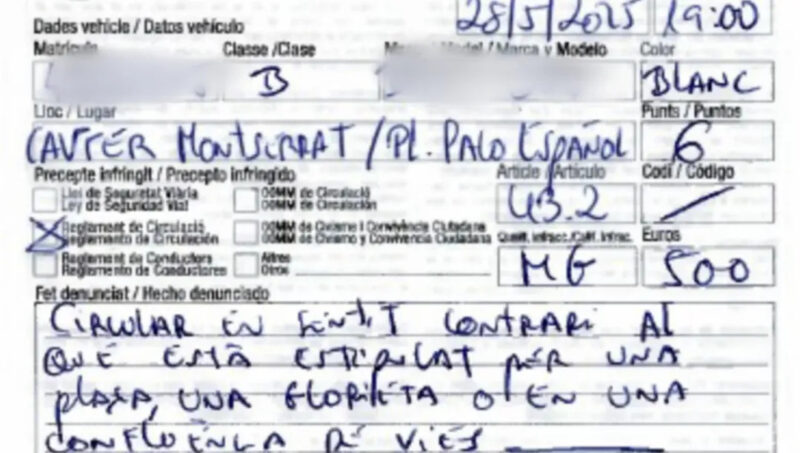 Dades vehicle / Datos vehículo 28/5/2025 19:00
Matrícula Classe /Clase / Marca y Modelo Color
B BLANC
Lloc / Lugar Punts / Puntos
CARRER MONTSERRAT / Pl. PALO ESPAÑOL 6
Precepte infringit / Precepto infringido Article / Artículo Codi / Código
Llei de Seguretat Viària OOMM de Circulació
Ley de Seguridad Vial OOMM de Circulación
43.2 /
Reglament de Circulació OOMM de Civisme i Convivència Ciutadana
Reglamento de Circulación OOMM de Civismo y Convivencia Ciudadana Euros
Reglament de Conductors Altres
Reglamento de Conductores Otros
MG 500
Fet denunciat / Hecho denunciado
CIRCULAR EN SENTIT CONTRARI AL
QUE ESTÀ ESTIPULAT PER UNA
PLAÇA, UNA GLORIETA O EN UNA
CONFLUÈNCIA DE VIES